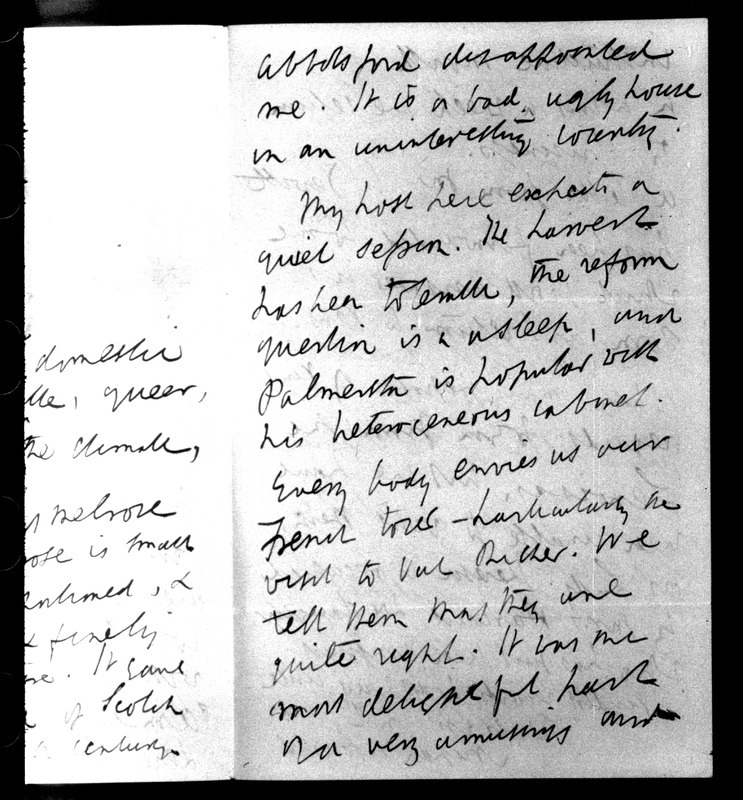 domestic
queer,
the climate,
Melrose
is small
&
finely
It gave
of Scotch
century.
Abbotsford disappointed
me. It is a bad, ugly house
in an uninteresting country.
My host here expects a
quiet session. The harvest
has been tolerable, the reform
question is asleep, and
Palmerston is popular with
his heterogeneous cabinet.
Every body envies us our
French tour – particularly the
visit to Val Richer. We
tell them that they are
quite right. It was the
most delightful part
of a very amusing and